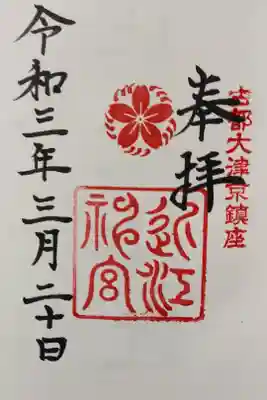 古都大津京鎮座
奉拝
近江神宮
令和三年三月二十日